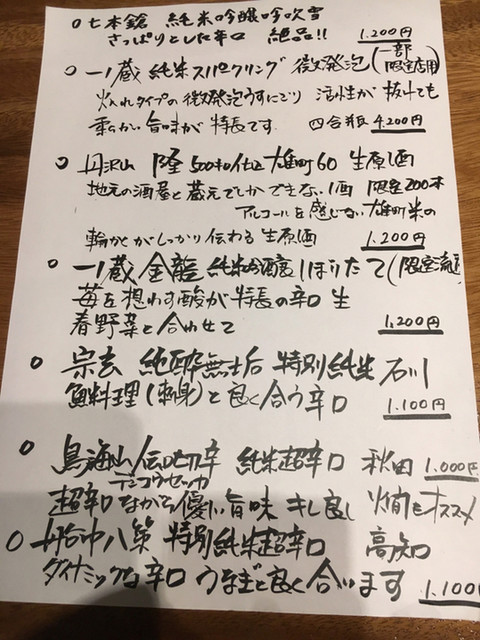 ○七本鎗 純米吟醸吟吹雪
さっぱりとした辛口 絶品!! 1.200円
○一ノ蔵 純米スパークリング 微発泡(一部限定店用
火入れタイプの微発泡うすにごり 活性が抜けても
柔らかい旨味が特長です 四合瓶 4.200円
○丹沢山 隆 500キロ仕込 雄町60 生原酒
地元の酒屋と蔵元でしかできない酒 限定200本
アルコールを感じない雄町米の
輪かくがしっかり伝わる生原酒 1.200円
○一ノ蔵 金龍 純米吟醸 しぼりたて(限定流通
苺を想わす酸が特長の辛口 生
春野菜と合わせて 1,200円
○宗玄 純酔無垢 特別純米 石川
魚料理(刺身)と良く合う辛口 1.100円
○鳥海山 伝口切辛 純米超辛口 秋田 1.000円
テンコウセッカ
超辛口ながら優しい旨味 キレ良し 火間もオススメ
○丹台中八策 特別純米超辛口 高知
ダイナミックな辛口 うなぎと良く合います 1.100